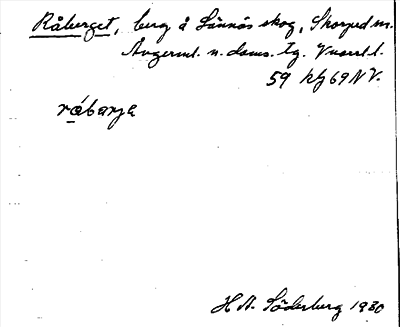 Råberget, berg å Sånnås skog, Skorped sn.
Ångerml. n. doms. tg.
59 kf 69 NV.
råbarja
H A. Söderberg 1930